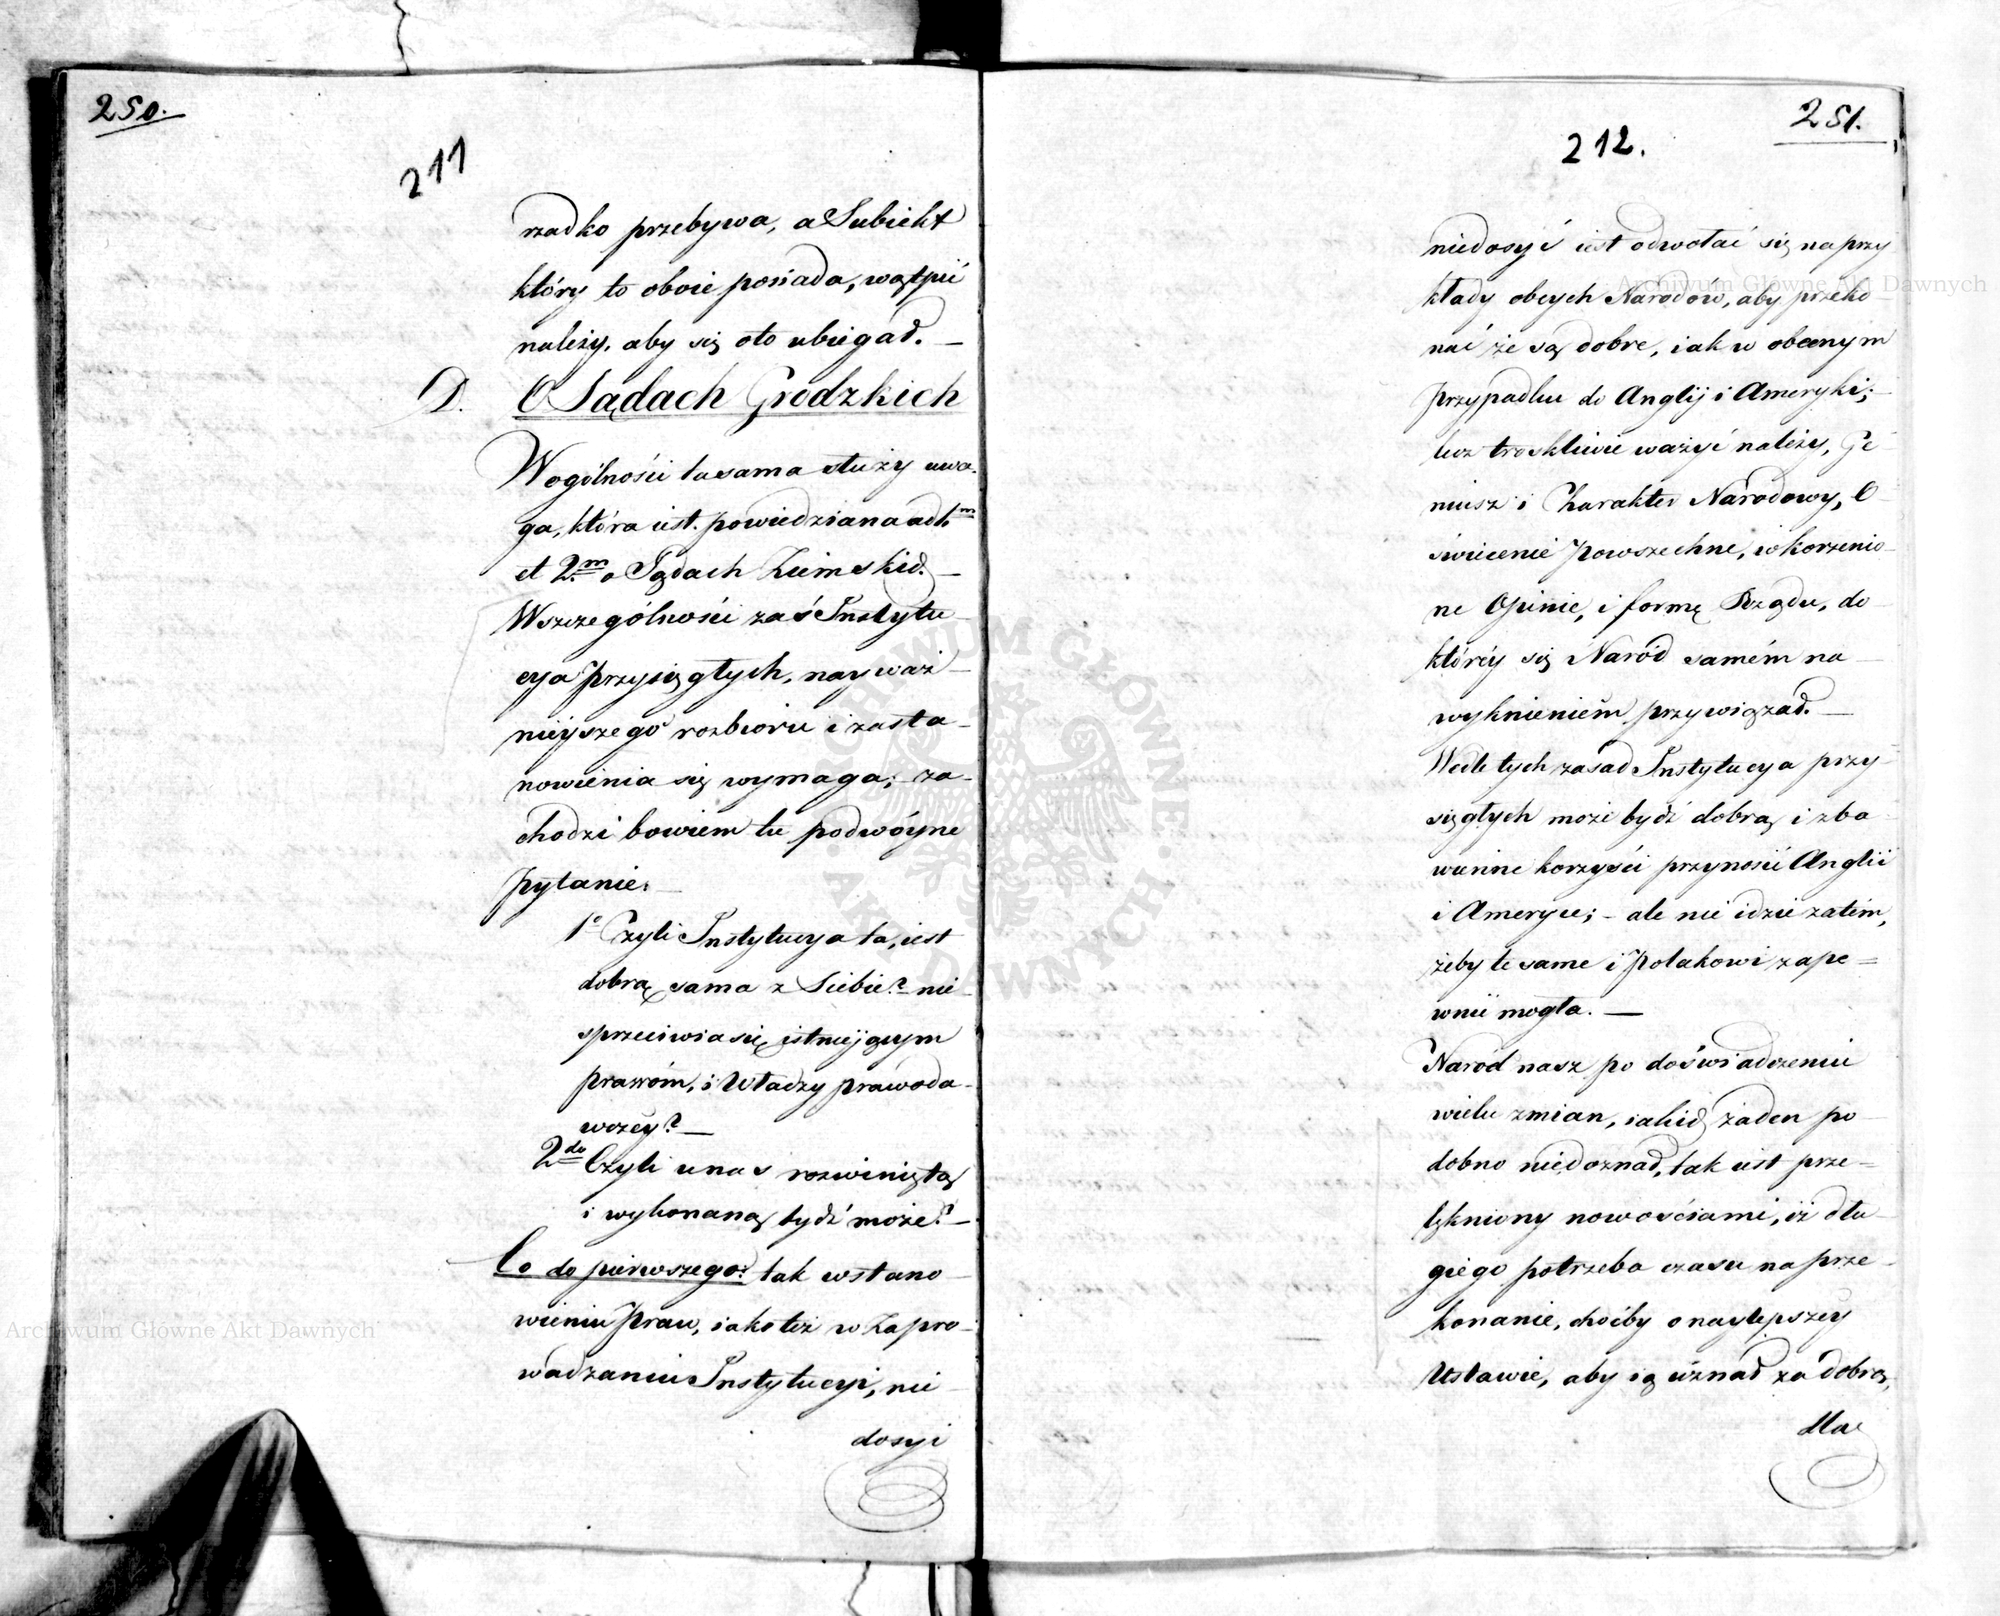 250.
211
rzadko przebywa, a Subiekt
który to oboie posiada, wątpić
należy, aby się oto ubiegał. —
D. O Sądach Grodzkich
W ogólności ta sama służy uwa-
ga, która iest powiedziana ad 1.m
et 2.m o Sądach Ziemskich. —
W szczególności zaś Instytu-
cya Przysięgłych, nayważ-
nieyszego rozbioru i zasta-
nowienia się wymaga; za-
chodzi bowiem tu podwóyne
Pytanie. —
1o Czyli Instytucya ta, iest
dobrą sama z Siebie? nie
sprzeciwia się istniejącym
prawóm, i Władzy prawoda-
wczey? —
2do Czyli u nas rozwiniętą
i wykonaną bydź może? —
Co do pierwszego: tak w stano-
wieniu Praw, iako też w Zapro-
wadzaniu Instytucyi, nie-
dosyć
251.
212.
niedosyć iest odwołać się na przy-
kłady obcych Narodów, aby przeko-
nać że są dobre, iak w obecnym
Przypadku do Anglij i Ameryki;
lecz troskliwie ważyć należy, Ge-
niusz i Charakter Narodowy, O-
świecenie Powszechne, wkorzenio-
ne Opinie, i formę Rządu, do
któréy się Naród samém na-
wyknieniem przywiązał. —
Wedle tych zasad Instytucya przy-
sięgłych może bydź dobrą i zba-
wienne korzyści przynosić Anglii
i Ameryce; – ale nie idzie zatém,
żeby te same i Polakowi zape=
wnić mogła. —
Naród nasz po doświadczeniu
wielu zmian, iakich żaden po-
dobno niedoznał, tak iest prze=
lękniony nowościami, iż dłu-
giego potrzeba czasu na prze-
konanie, choćby o naylepszey
Ustawie, aby ią uznał za dobrą,
dla
Archiwum Główne Akt Dawnych
Archiwum Główne Akt Dawnych
ARCHIWUM GŁÓWNE · AKT DAWNYCH ·